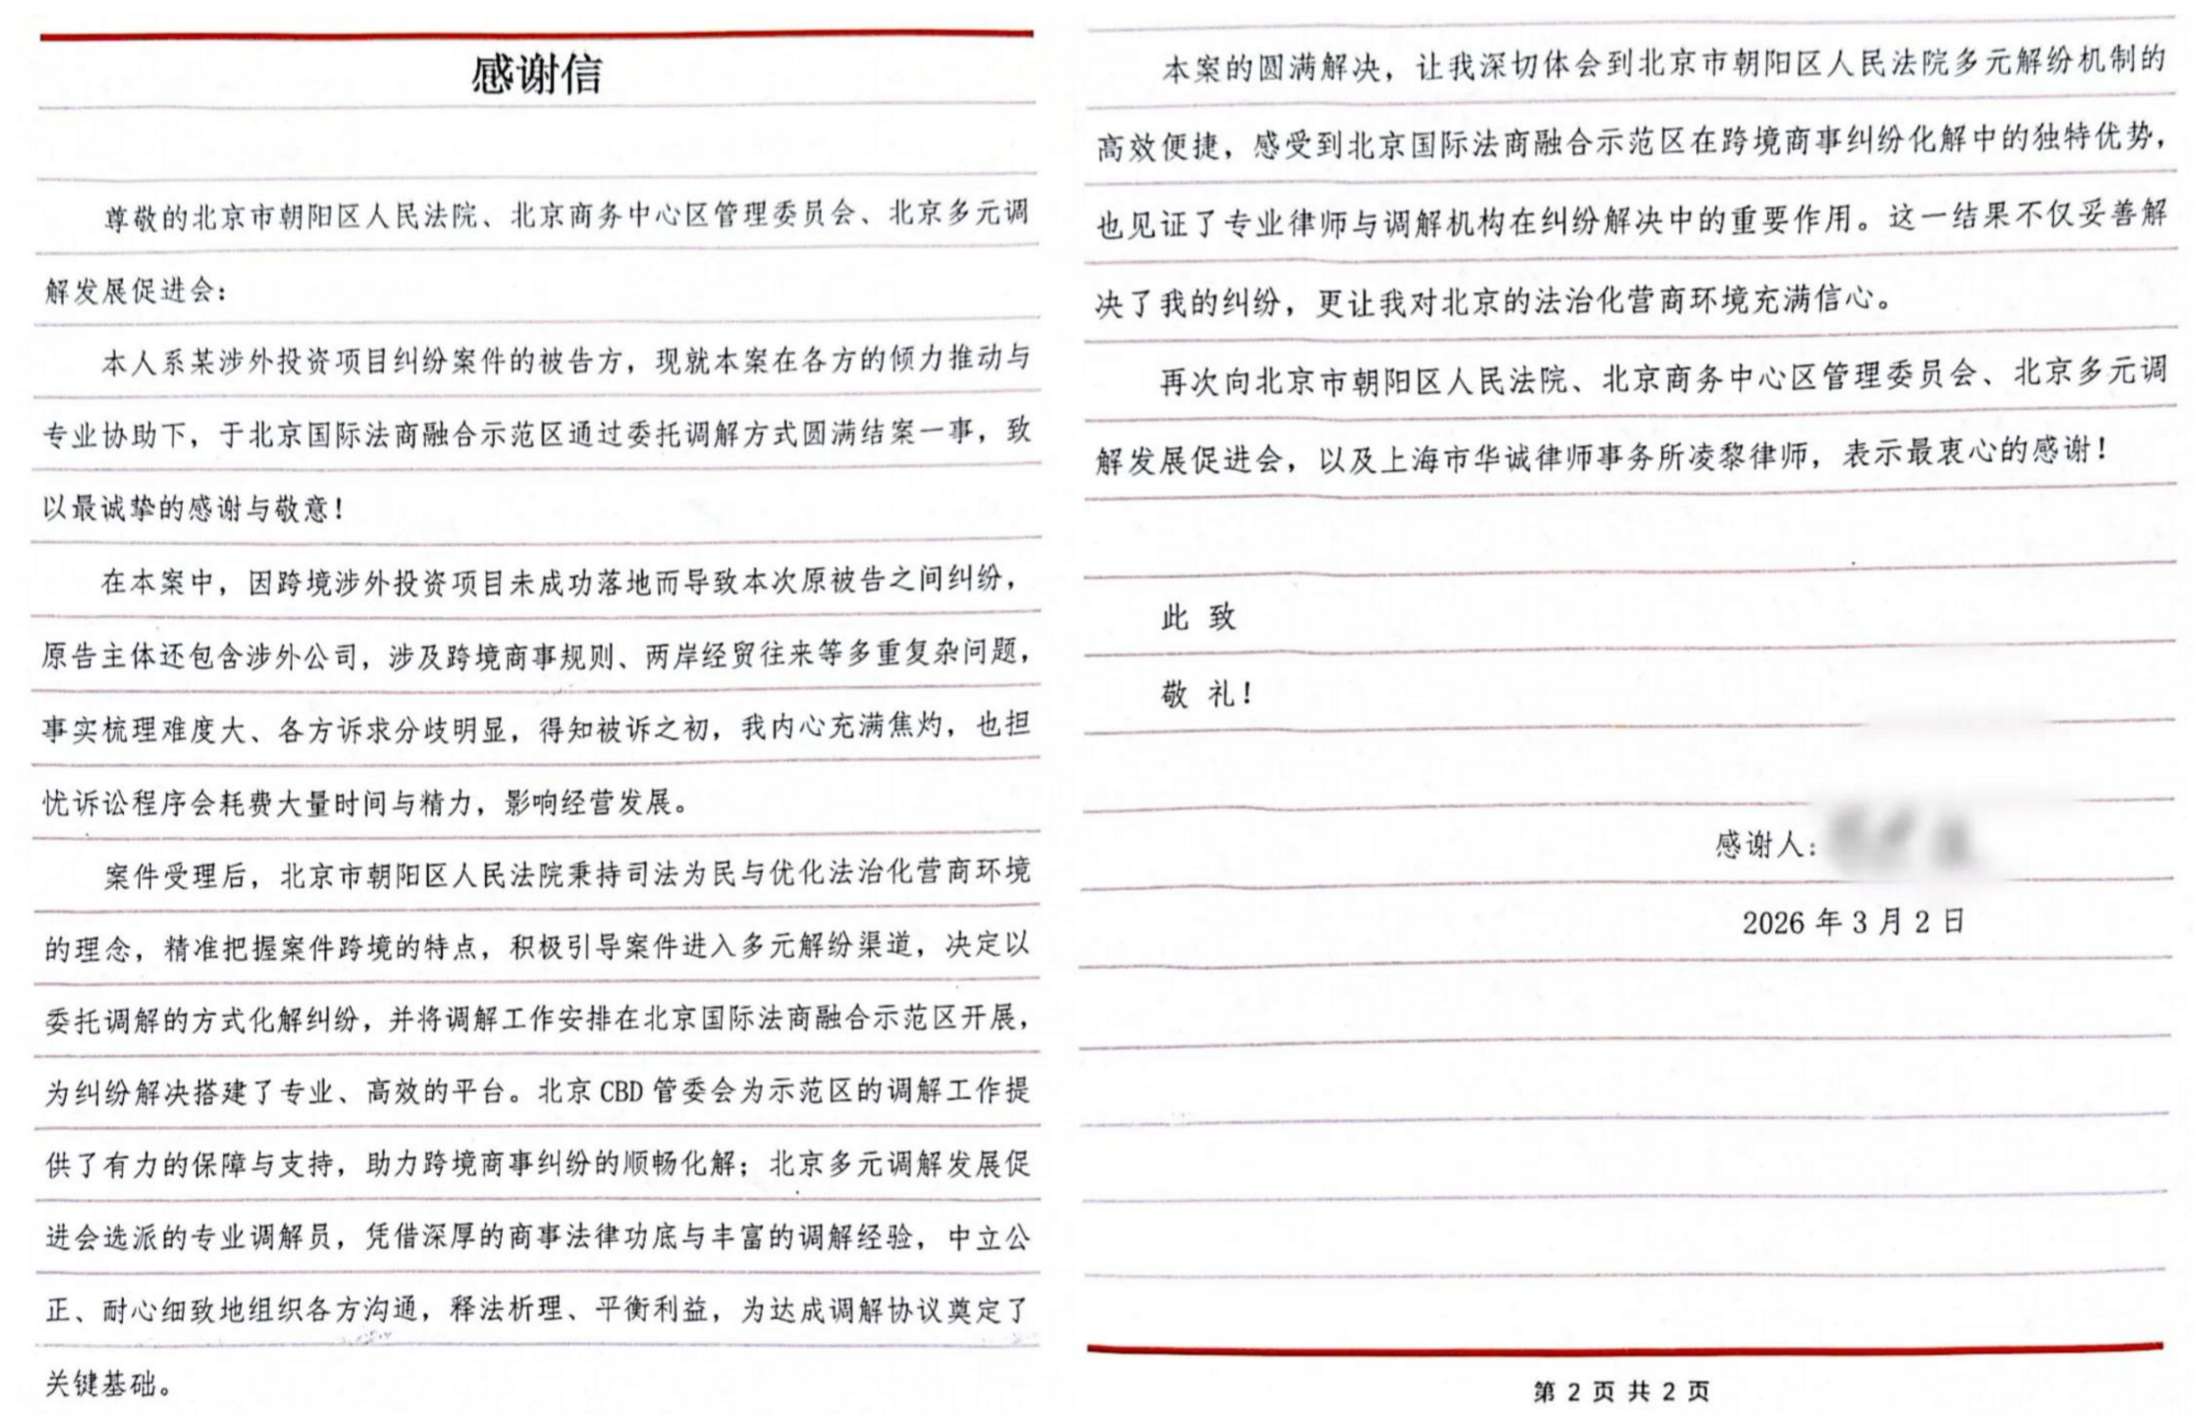 感谢信
尊敬的北京市朝阳区人民法院、北京商务中心区管理委员会、北京多元调
解发展促进会：
本人系某涉外投资项目纠纷案件的被告方，现就本案在各方的倾力推动与
专业协助下，于北京国际法商融合示范区通过委托调解方式圆满结案一事，致
以最诚挚的感谢与敬意！
在本案中，因跨境涉外投资项目未成功落地而导致本次原被告之间纠纷，
原告主体还包含涉外公司，涉及跨境商事规则、两岸经贸往来等多重复杂问题，
事实梳理难度大、各方诉求分歧明显，得知被诉之初，我内心充满焦灼，也担
忧诉讼程序会耗费大量时间与精力，影响经营发展。
案件受理后，北京市朝阳区人民法院秉持司法为民与优化法治化营商环境
的理念，精准把握案件跨境的特点，积极引导案件进入多元解纷渠道，决定以
委托调解的方式化解纠纷，并将调解工作安排在北京国际法商融合示范区开展，
为纠纷解决搭建了专业、高效的平台。北京 CBD 管委会为示范区的调解工作提
供了有力的保障与支持，助力跨境商事纠纷的顺畅化解；北京多元调解发展促
进会选派的专业调解员，凭借深厚的商事法律功底与丰富的调解经验，中立公
正、耐心细致地组织各方沟通，释法析理、平衡利益，为达成调解协议奠定了
关键基础。
本案的圆满解决，让我深切体会到北京市朝阳区人民法院多元解纷机制的
高效便捷，感受到北京国际法商融合示范区在跨境商事纠纷化解中的独特优势，
也见证了专业律师与调解机构在纠纷解决中的重要作用。这一结果不仅妥善解
决了我的纠纷，更让我对北京的法治化营商环境充满信心。
再次向北京市朝阳区人民法院、北京商务中心区管理委员会、北京多元调
解发展促进会，以及上海市华诚律师事务所凌黎律师，表示最衷心的感谢！
此 致
敬 礼！
感谢人：
2026 年 3 月 2 日
第 2 页 共 2 页